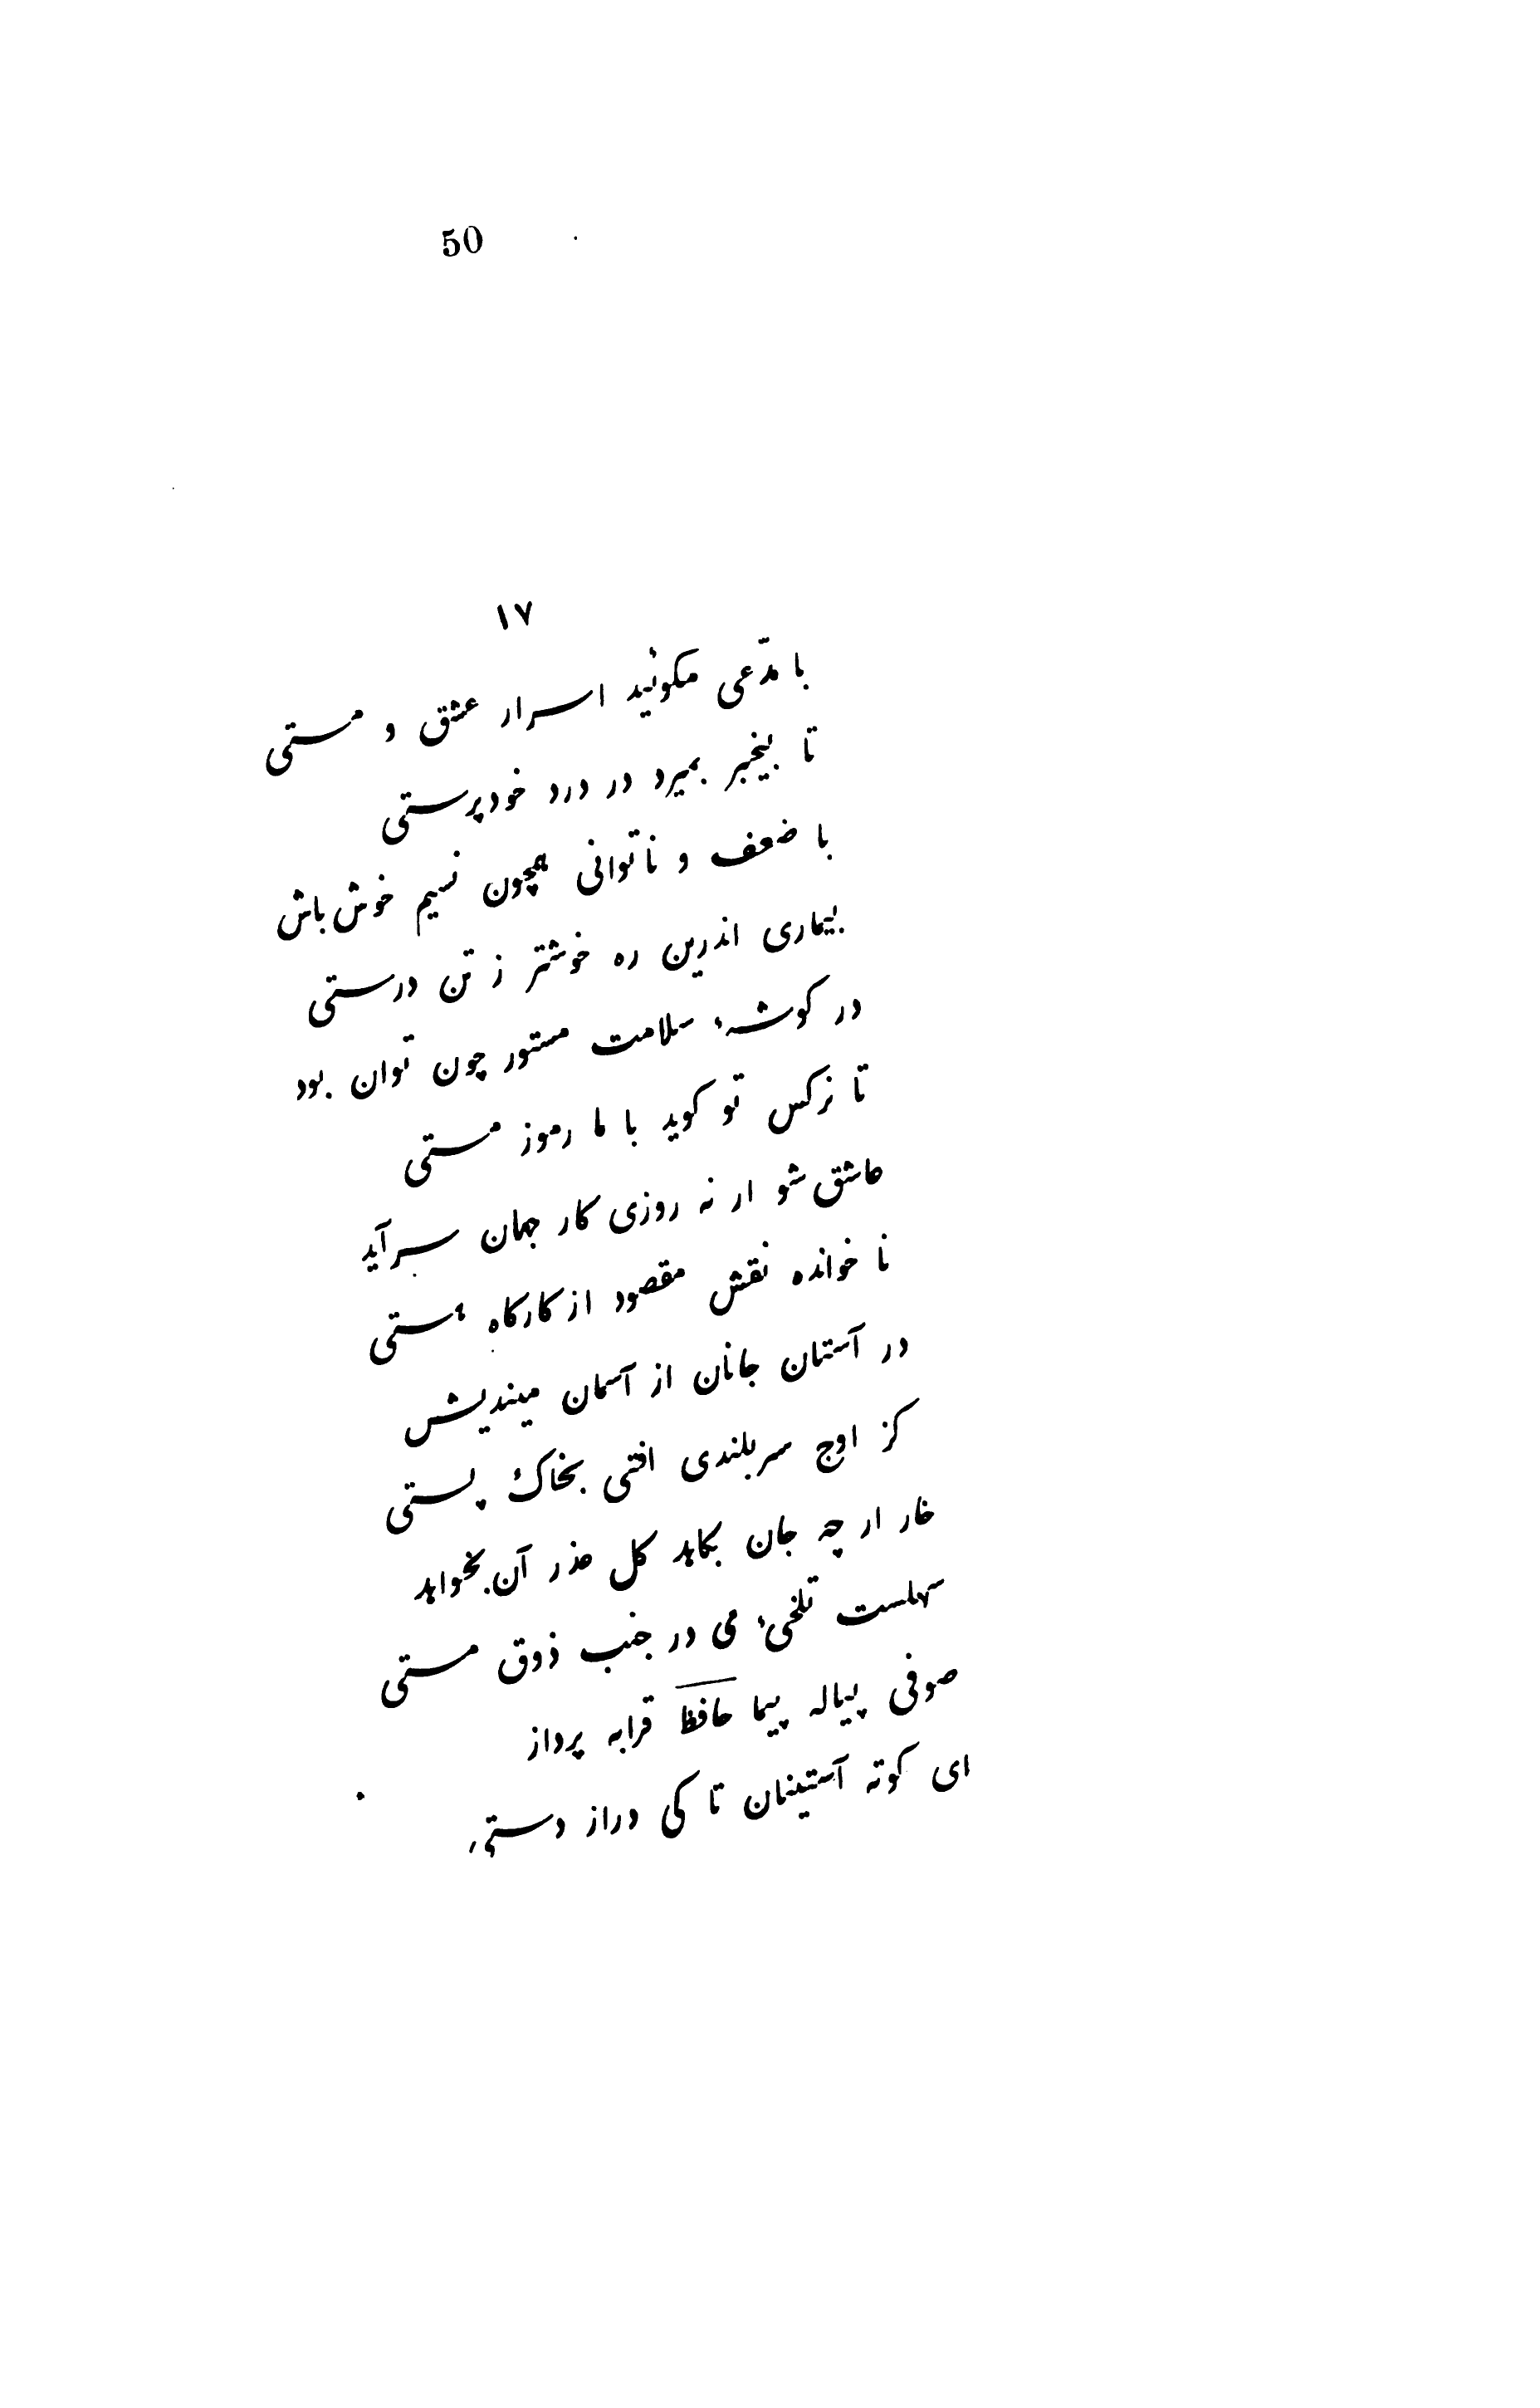 50
١٧
با مدّعی مکوئید اسرار عشق و مستی
تا بیخبر بمیرد در درد خودپرستی
با ضعف و ناتوانی همچون نسیم خوش باش
بیماری اندرین ره خوشتر ز تن درستی
در کوشهٔ سلامت مستور چون توان بود
تا نرکس تو کوید با ما رموز مستی
عاشق شو ار نه روزی کار جهان سرآید
نا خوانده نقش مقصود از کارکاه هستی
در آستان جانان از آسمان میندیش
کز اوج سربلندی افتی بخاک پستی
خار ار چه جان بکاهد کل عذر آن بخواهد
سهلست تلخیٔ می در جنب ذوق مستی
صوفی پیاله پیما حافظ قرابه پرداز
ای کوته آستینان تا کی دراز دستی